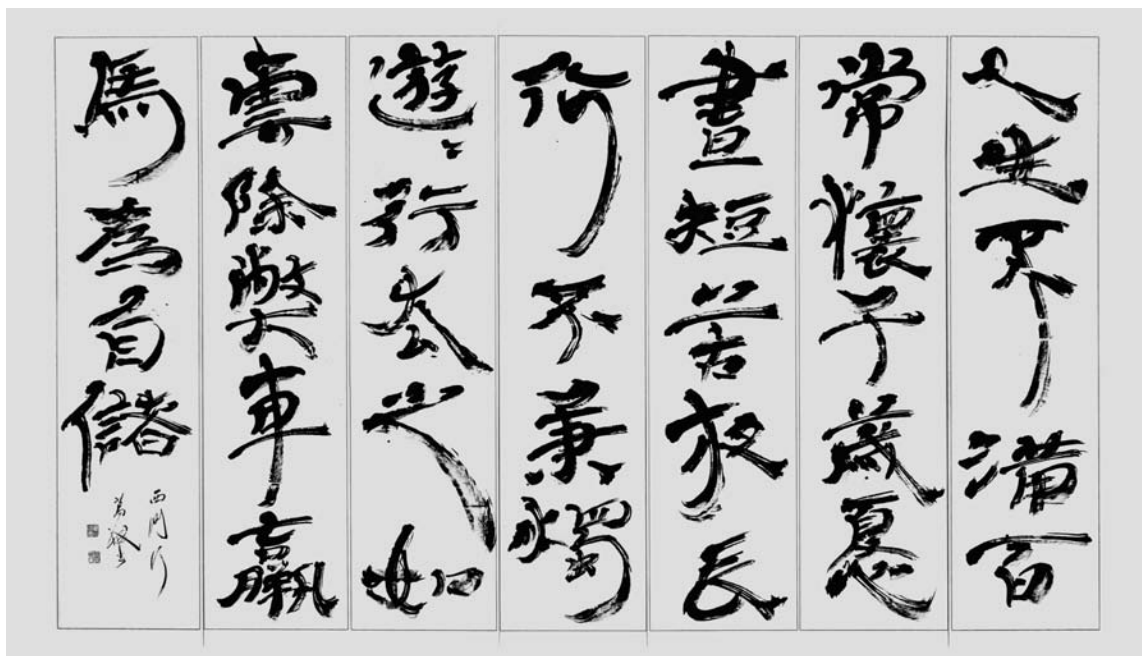 人生不滿百
常懷千歲憂
晝短苦夜長
何不秉燭
遊〻行去之如
雲除獘車羸
馬為自儲
西門行